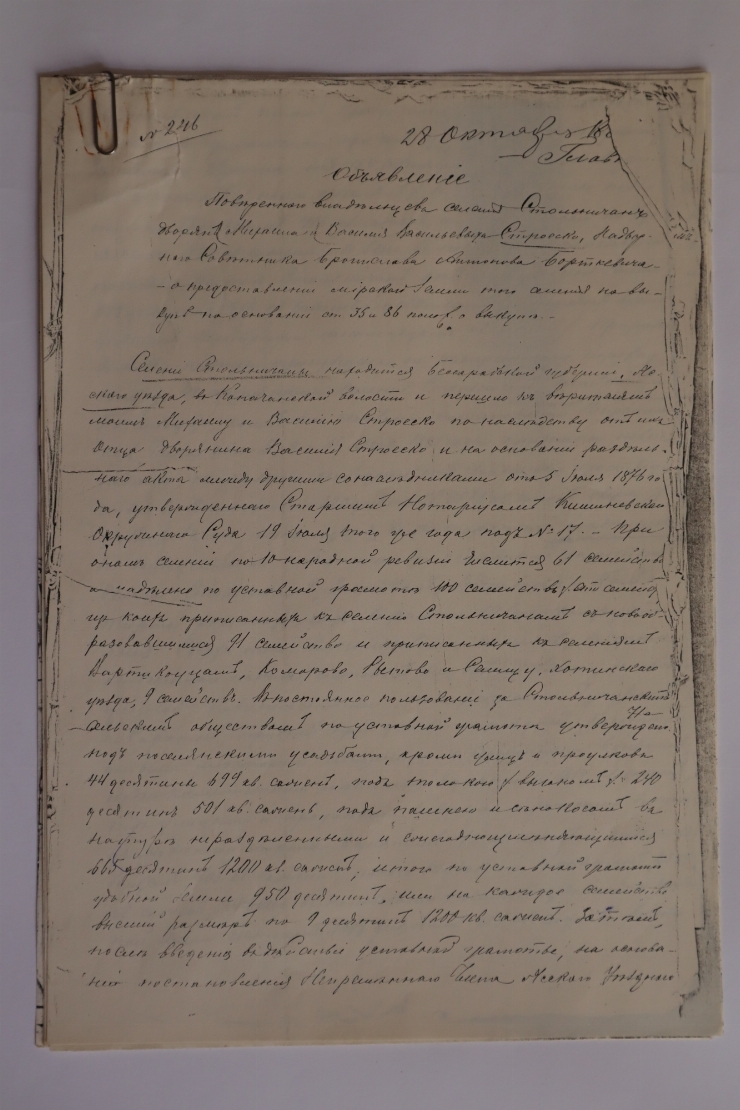 № 246
28 Октября 18
Глав
Объявленіе
Повѣреннаго владѣльцевъ селенія Стольничанъ
дворянъ Михаила и Василія Васильевыхъ Строеско, Надвор-
наго Совѣтника Бронислава Антонова Борткевича
- о предоставленіи мірской земли того селенія на вы-
купъ на основаніи ст 35 и 36 полож. о выкупѣ. -
Селеніе Стольничаны находится Бессарабской губерніи, Яс-
скаго уѣзда, въ Копачанской волости и перешло къ вѣрителямъ
моимъ Михаилу и Василію Строеско по наслѣдству отъ ихъ
отца дворянина Василія Строеско и на основаніи раздѣль-
наго акта между другими сонаслѣдниками отъ 5 Іюля 1876 го-
да, утвержденнаго Старшимъ Нотаріусомъ Кишиневскаго
Окружнаго Суда 19 Іюля того же года подъ № 17. - При
ономъ селеніи по 10 народной ревизіи числится 61 семейство
а надѣлено по уставной грамотѣ 100 семействъ. семейст
изъ коихъ приписанныхъ къ селенію Стольничанамъ съ новооб-
разовавшимися 91 семейство и приписанныхъ къ селеніямъ
Вартикоуцамъ, Комарово, Рытово и Хотинскаго
уѣзда, 9 семействъ. Въ постоянное пользованіе за Стольничанскимъ
сельскимъ обществомъ по уставной грамотѣ утверждено
подъ поселянскими усадьбами, кромѣ улицъ и проулковъ
44 десятины 699 кв. сажень, подъ толокою / выгономъ / - 240
десятинъ 501 кв. сажень, подъ пашнею и сѣнокосомъ въ
натурѣ нераздѣленными и
665 десятинъ 1200 кв. сажень, итого по уставной грамотѣ
удобной земли 950 десятинъ, или на каждое семейство
высшій размѣръ по 9 десятинъ 1200 кв. сажень. Затѣмъ,
послѣ введенія въ дѣйствіе уставной грамоты, на основа-
ніи постановленія Непремѣннаго Члена Ясскаго Уѣзднаго